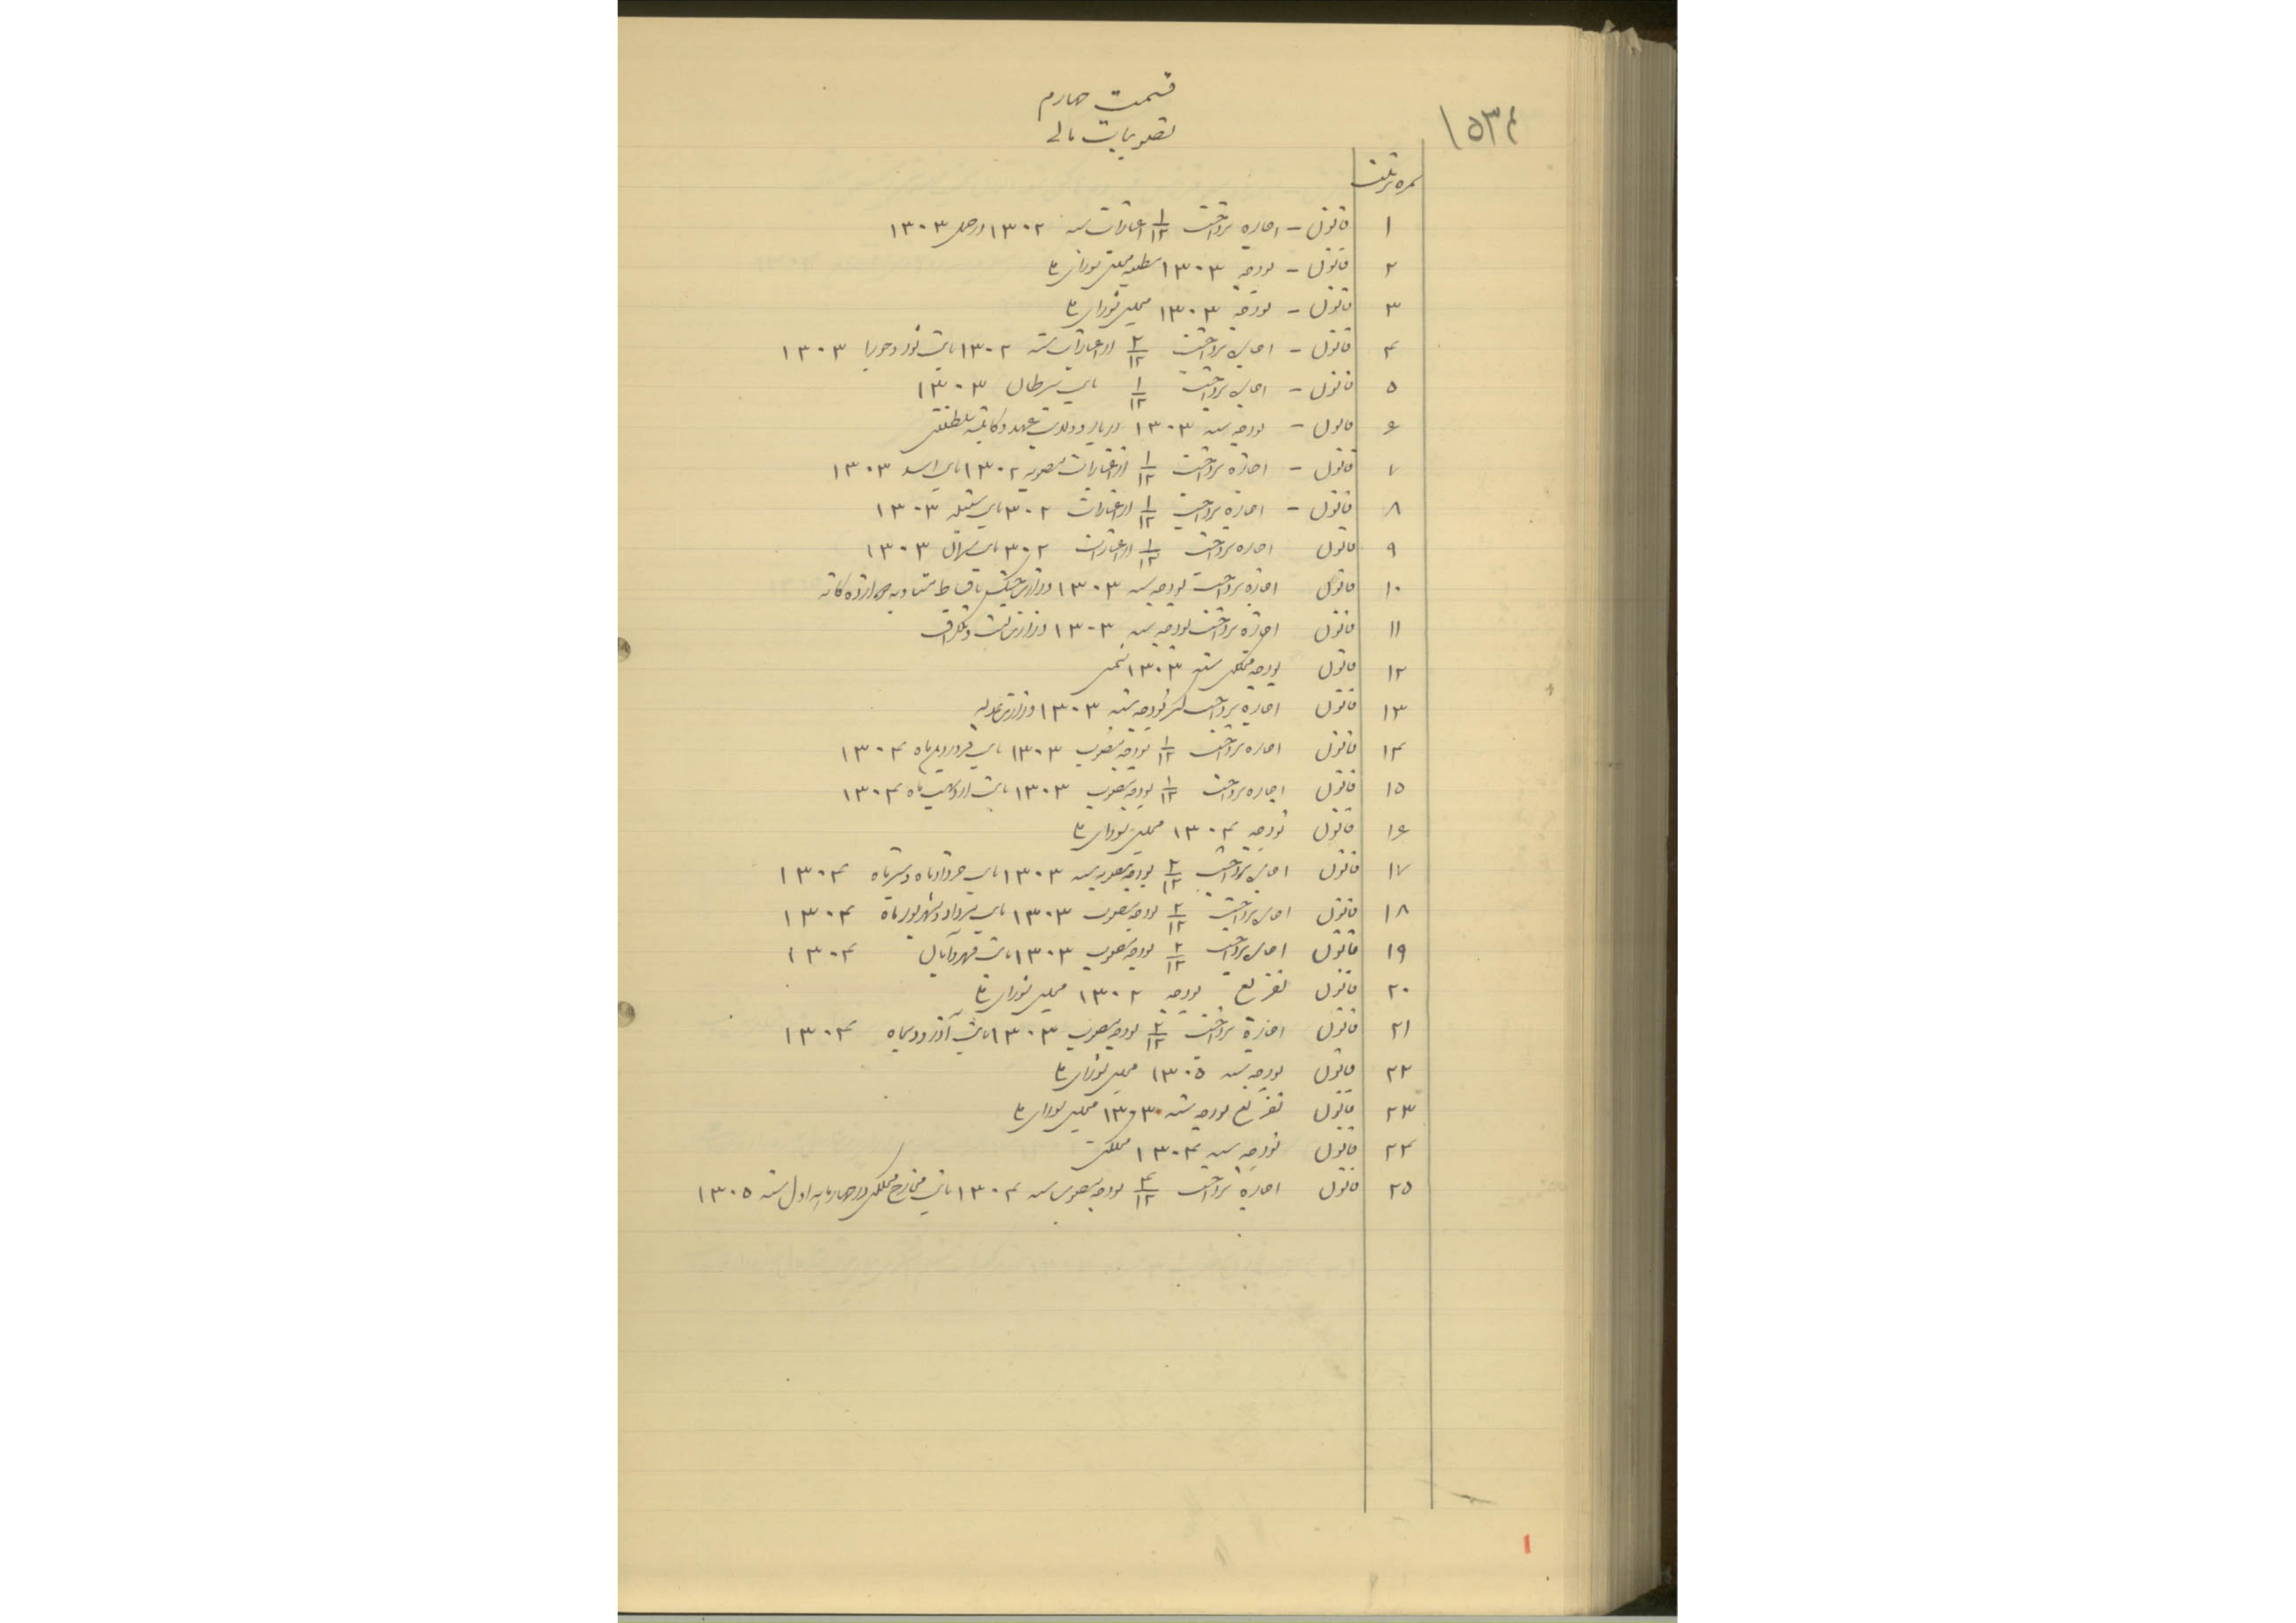 ۱۵۳۴
قسمت چهارم
تصویبات مالی
نمره ترتیب
۱ قانون - اجازه پرداخت ۱/۱۲ اعتبارات سنه ۱۳۰۲ در حمل ۱۳۰۳
۲ قانون - بودجه ۱۳۰۳ مطبعه مجلس شورای ملی
۳ قانون - بودجه ۱۳۰۳ مجلس شورای ملی
۴ قانون - اجازه پرداخت ۲/۱۲ از اعتبارات سنه ۱۳۰۲ بابت ثور و جوزا ۱۳۰۳
۵ قانون - اجازه پرداخت ۱/۱۲ بابت سرطان ۱۳۰۳
۶ قانون - بودجه سنه ۱۳۰۳ دربار و ولایت عهد و کابینه سلطنتی
۷ قانون - اجازه پرداخت ۱/۱۲ از اعتبارات مصوبه ۱۳۰۲ بابت اسد ۱۳۰۳
۸ قانون - اجازه پرداخت ۱/۱۲ از اعتبارات ۳۰۲ بابت سنبله ۱۳۰۳
۹ قانون اجازه پرداخت ۱/۱۲ از اعتبارات ۳۰۲ بابت میزان ۱۳۰۳
۱۰ قانون اجازه پرداخت بودجه سنه ۱۳۰۳ وزارت جنگ باقساط متساویه دوازده گانه
۱۱ قانون اجازه پرداخت بودجه سنه ۱۳۰۳ وزارت پست و تلگراف
۱۲ قانون بودجه مملکتی سنه ۱۳۰۳ شمسی
۱۳ قانون اجازه پرداخت کسر بودجه سنه ۱۳۰۳ وزارت عدلیه
۱۴ قانون اجازه پرداخت ۱/۱۲ بودجه مصوب ۱۳۰۳ بابت فروردین ماه ۱۳۰۴
۱۵ قانون اجازه پرداخت ۱/۱۲ بودجه مصوب ۱۳۰۳ بابت اردیبهشت ماه ۱۳۰۴
۱۶ قانون بودجه ۱۳۰۴ مجلس شورای ملی
۱۷ قانون اجازه پرداخت ۲/۱۲ بودجه مصوبه سنه ۱۳۰۳ بابت خرداد ماه و تیر ماه ۱۳۰۴
۱۸ قانون اجازه پرداخت ۲/۱۲ بودجه مصوب ۱۳۰۳ بابت مرداد و شهریور ماه ۱۳۰۴
۱۹ قانون اجازه پرداخت ۲/۱۲ بودجه مصوب ۱۳۰۳ بابت مهر و آبان ۱۳۰۴
۲۰ قانون تفریغ بودجه ۱۳۰۲ مجلس شورای ملی
۲۱ قانون اجازه پرداخت ۲/۱۲ بودجه مصوب ۱۳۰۳ بابت آذر و دیماه ۱۳۰۴
۲۲ قانون بودجه سنه ۱۳۰۵ مجلس شورای ملی
۲۳ قانون تفریغ بودجه سنه ۱۳۰۳ مجلس شورای ملی
۲۴ قانون بودجه سنه ۱۳۰۴ مملکتی
۲۵ قانون اجازه پرداخت ۴/۱۲ بودجه مصوب سنه ۱۳۰۴ بابت مخارج مملکتی در چهار ماهه اول سنه ۱۳۰۵
۱